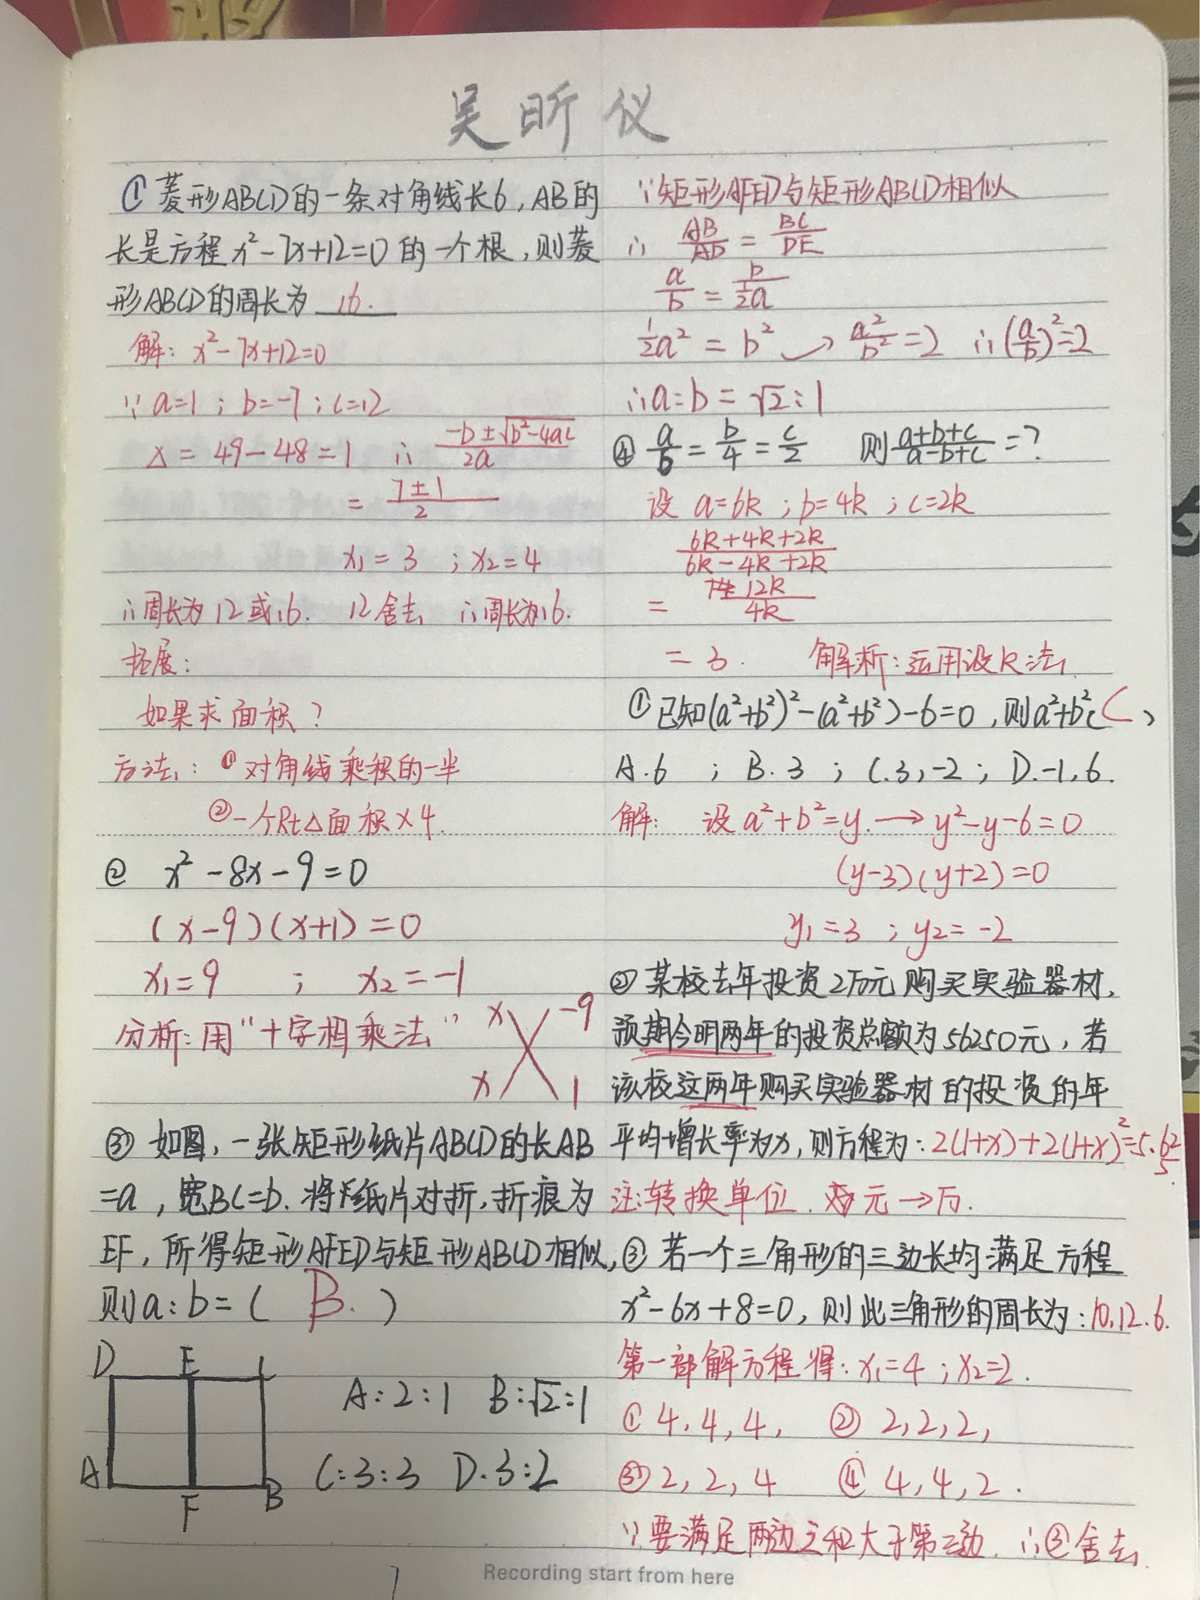 吴昕仪
①菱形ABCD的一条对角线长6,AB的
长是方程x²-7x+12=0的一个根,则菱
形ABCD的周长为 16.
解:x²-7x+12=0
∵a=1;b=-7;c=12
△=49-48=1 ∴ (-b±√(b²-4ac))/2a
= (7±1)/2
x₁=3 ;x₂=4
∴周长为12或16. 12舍去 ∴周长为16.
拓展:
如果求面积?
方法:①对角线乘积的一半
②一个Rt△面积×4.
② x²-8x-9=0
(x-9)(x+1)=0
x₁=9 ; x₂=-1
分析:用"十字相乘法" x -9
x 1
③ 如图,一张矩形纸片ABCD的长AB
=a,宽BC=b.将纸片对折,折痕为
EF,所得矩形AFED与矩形ABCD相似,
则a:b=( B. )
D E C
A F B
A:2:1 B:√2:1
C:3:3 D.3:2
∵矩形AFED与矩形ABCD相似
∴ AB/AD = BC/DE
a/b = b/(½a)
½a² = b² → a²/b²=2 ∴(a/b)²=2
∴a:b=√2:1
④ a/6=b/4=c/2 则(a+b+c)/(a-b+c)=?
设a=6k;b=4k;c=2k
(6k+4k+2k)/(6k-4k+2k)
= 12k/4k
=3. 解析:运用设k法
①已知(a²+b²)²-(a²+b²)-6=0,则a²+b²( C )
A.6 ; B.3 ; C.3,-2; D.-1,6.
解: 设a²+b²=y.→y²-y-6=0
(y-3)(y+2)=0
y₁=3 ;y₂=-2
②某校去年投资2万元购买实验器材,
预期今明两年的投资总额为56250元,若
该校这两年购买实验器材的投资的年
平均增长率为x,则方程为:2(1+x)+2(1+x)²=5.625
注:转换单位. 元→万.
③若一个三角形的三边长均满足方程
x²-6x+8=0,则此三角形的周长为:10.12.6.
第一部解方程得:x₁=4;x₂=2.
① 4,4,4, ② 2,2,2,
③ 2,2,4 ④ 4,4,2.
∵要满足两边之和大于第三边.∴③舍去.
Recording start from here